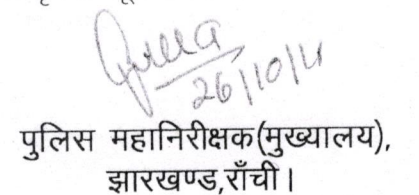 26/10/11
पुलिस महानिरीक्षक(मुख्यालय),
झारखण्ड,राँची।